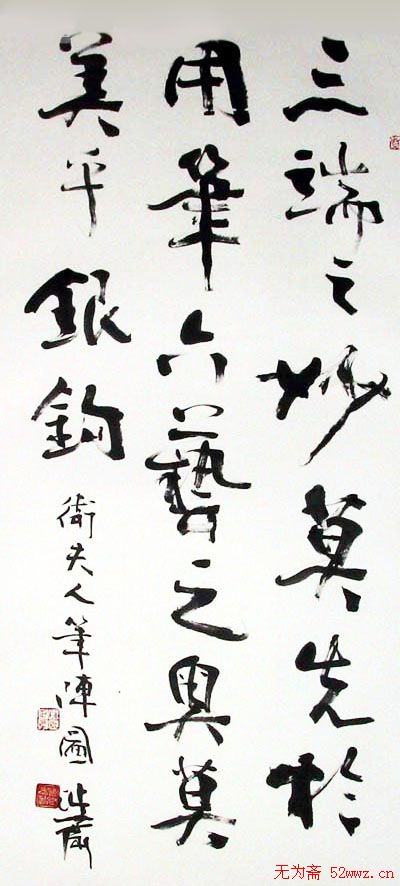 三端之妙莫先於
用筆六藝之奧莫
美乎銀鉤
衛夫人筆陣圖
无为斋 52wwz.cn